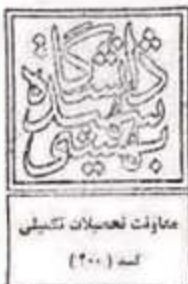 دانشگاه
شهید
بهشتی
معاونت تحصیلات تکمیلی
کمد (۲۰۰)